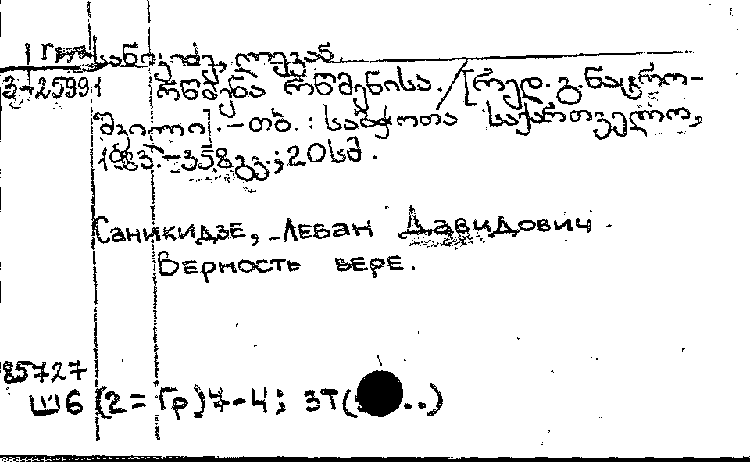 სანიკიძე, ლევან.
3-25991 რწმენა რწმენისა. / [რედ. გ. ნატრო-
შვილი]. - თბ. : საბჭოთა საქართველო,
1983. - 358 გვ.; 20 სმ.
Саникидзе, Леван Давидович.
Верность вере.
85727
Ш6 (2=Гр)7-4; 3Т(